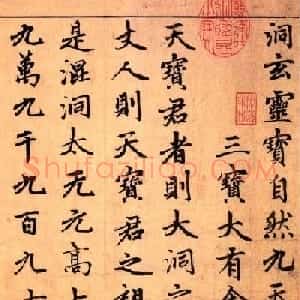 洞玄靈寶自然九天
三寶大有金
天寶君者則大洞
丈人則天寶君之祖
是混洞太无元高上
九萬九千九百九十
Shufaziliao.com